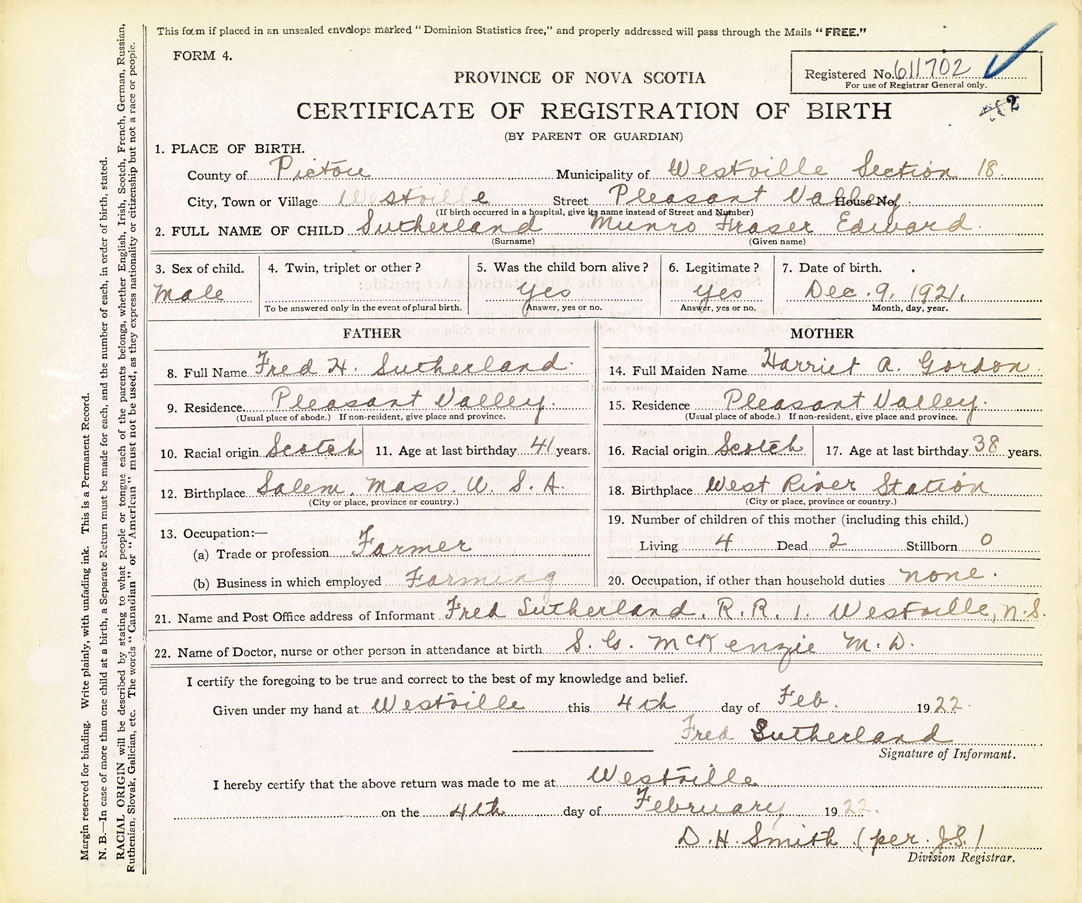 This form if placed in an unsealed envelope marked "Dominion Statistics free," and properly addressed will pass through the Mails "FREE."
FORM 4.
Registered No. 611702
For use of Registrar General only.
PROVINCE OF NOVA SCOTIA
CERTIFICATE OF REGISTRATION OF BIRTH
(BY PARENT OR GUARDIAN)
1. PLACE OF BIRTH.
County of Pictou Municipality of Westville Section 18.
City, Town or Village Westville Street Pleasant Valley House No.
(If birth occurred in a hospital, give its name instead of Street and Number)
2. FULL NAME OF CHILD Sutherland Munro Fraser Edward.
(Surname) (Given name)
3. Sex of child. 4. Twin, triplet or other? 5. Was the child born alive? 6. Legitimate? 7. Date of birth.
Male Yes Yes Dec. 9, 1921.
To be answered only in the event of plural birth. Answer, yes or no. Answer, yes or no. Month, day, year.
FATHER
8. Full Name Fred H. Sutherland.
9. Residence Pleasant Valley.
(Usual place of abode.) If non-resident, give place and province.
10. Racial origin Scotch 11. Age at last birthday 41 years.
12. Birthplace Salem, Mass. U. S. A.
(City or place, province or country.)
13. Occupation:—
(a) Trade or profession Farmer
(b) Business in which employed Farming
MOTHER
14. Full Maiden Name Harriet A. Gordon.
15. Residence Pleasant Valley.
(Usual place of abode.) If non-resident, give place and province.
16. Racial origin Scotch 17. Age at last birthday 38 years.
18. Birthplace West River Station
(City or place, province or country.)
19. Number of children of this mother (including this child.)
Living 4 Dead 2 Stillborn 0
20. Occupation, if other than household duties none.
21. Name and Post Office address of Informant Fred Sutherland, R. R. 1. Westville, N.S.
22. Name of Doctor, nurse or other person in attendance at birth S. G. McKenzie M. D.
I certify the foregoing to be true and correct to the best of my knowledge and belief.
Given under my hand at Westville this 4th day of Feb. 1922.
Fred Sutherland
Signature of Informant.
I hereby certify that the above return was made to me at Westville
on the 4th day of February 1922.
D. H. Smith (per. J.S.)
Division Registrar.
Margin reserved for binding. Write plainly, with unfading ink. This is a Permanent Record.
N. B.—In case of more than one child at a birth, a Separate Return must be made for each, and the number of each, in order of birth, stated.
RACIAL ORIGIN will be described by stating to what people or tongue each of the parents belongs, whether English, Irish, Scotch, French, German, Russian,
Ruthenian, Slovak, Galician, etc. The words "Canadian" or "American" must not be used, as they express nationality or citizenship but not a race or people.